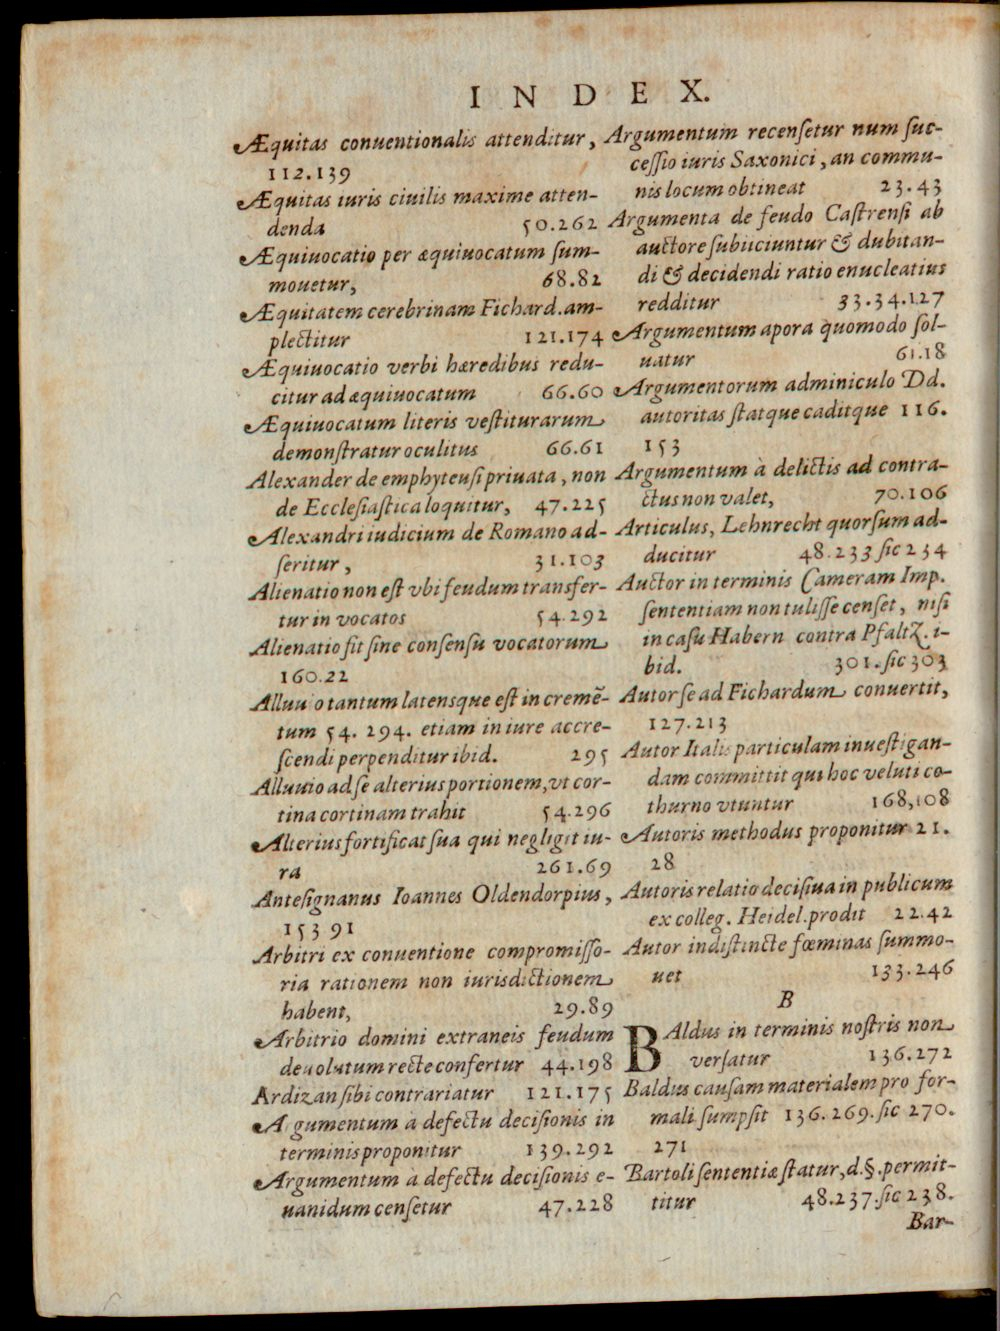 INDEX.
Æquitas conuentionalis attenditur,
112.139
Æquitas iuris ciuilis maxime atten-
denda 50.262
Æquiuocatio per æquiuocatum sum-
mouetur, 68.82
Æquitatem cerebrinam Fichard. am-
plectitur 121.174
Æquiuocatio verbi hæredibus redu-
citur ad æquiuocatum 66.60
Æquiuocatum literis vestiturarum
demonstratur oculitus 66.61
Alexander de emphyteusi priuata, non
de Ecclesiastica loquitur, 47.225
Alexandri iudicium de Romano ad-
seritur, 31.103
Alienatio non est vbi feudum transfer-
tur in vocatos 54.292
Alienatio fit sine consensu vocatorum
160.22
Alluuio tantum latensque est in cremẽ-
tum 54. 294. etiam in iure accre-
scendi perpenditur ibid. 295
Alluuio ad se alterius portionem, vt cor-
tina cortinam trahit 54.296
Alterius fortificat sua qui negligit iu-
ra 261.69
Antesignanus Ioannes Oldendorpius,
153 91
Arbitri ex conuentione compromisso-
ria rationem non iurisdictionem
habent, 29.89
Arbitrio domini extraneis feudum
deuolutum recte confertur 44.198
Ardizan sibi contrariatur 121.175
A gumentum a defectu decisionis in
terminis proponitur 139.292
Argumentum a defectu decisionis e-
uanidum censetur 47.228
Argumentum recensetur num suc-
cessio iuris Saxonici, an commu-
nis locum obtineat 23.43
Argumenta de feudo Castrensi ab
auctore subiiciuntur & dubitan-
di & decidendi ratio enucleatius
redditur 33.34.127
Argumentum apora quomodo sol-
uatur 61.18
Argumentorum adminiculo Dd.
autoritas statque caditque 116.
153
Argumentum à delictis ad contra-
ctus non valet, 70.106
Articulus, Lehnrecht quorsum ad-
ducitur 48.233 sic 234
Auctor in terminis Cameram Imp.
sententiam non tulisse censet, nisi
in casu Habern contra Pfaltz. i-
bid. 301. sic 303
Autor se ad Fichardum conuertit,
127.213
Autor Italis particulam inuestigan-
dam committit qui hoc veluti co-
thurno vtuntur 168,108
Autoris methodus proponitur 21.
28
Autoris relatio decisiua in publicum
ex colleg. Heidel. prodit 22.42
Autor indistincte fœminas summo-
uet 133.246
B
BAldus in terminis nostris non
versatur 136.272
Baldus causam materialem pro for-
mali sumpsit 136.269. sic 270.
271
Bartoli sententiæ statur, d.§. permit-
titur 48.237. sic 238.
Bar-